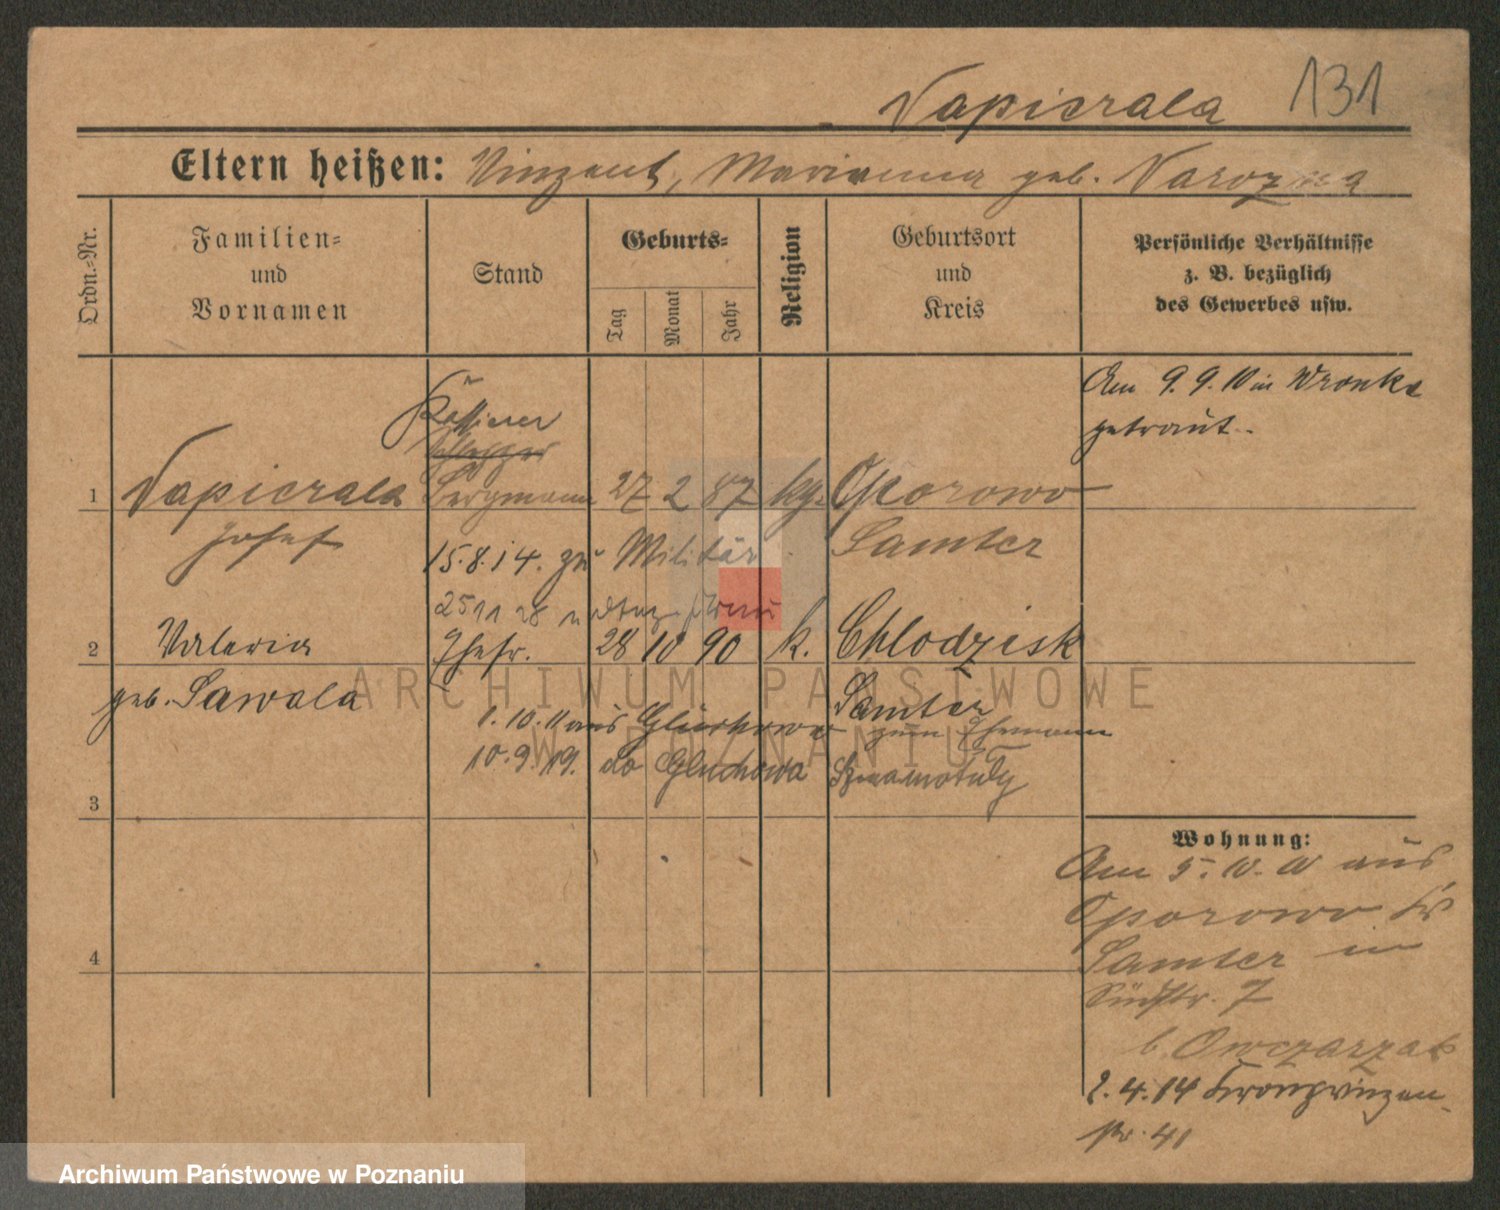 Napierala 131
Eltern heißen: Vinzent, Marianna geb. Narozna
Ordn.=Nr.
Familien=
und
Vornamen
Stand
Geburts=
Tag
Monat
Jahr
Religion
Geburtsort
und
Kreis
Persönliche Verhältnisse
z. B. bezüglich
des Gewerbes usw.
Am 9.9.10 in Wronke
getraut.
1 Napierala Bergmann 27 2 87 kg. Oporowo
Josef
Samter
15.8.14. zu Militär
25 11 28
2 Valeria Ehefr. 28 10 90 k. Chlodzisk
geb. Sawala
Samter
1.10.11 aus Gluchowo zum Ehemann
10.9.19. do Gluchowa Szamotuły
3
4
Wohnung:
Am 5.10.10 aus
Oporowo Kr
Samter in
Südstr. 7
b. Owczarzak
2.4.14 Kronprinzen-
str. 41
ARCHIWUM PAŃSTWOWE
W POZNANIU
Archiwum Państwowe w Poznaniu